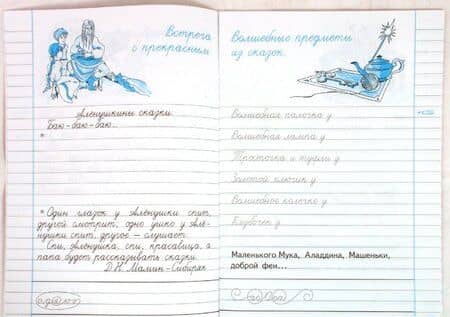 Встреча
с прекрасным
Алёнушкины сказки
Баю-баю-баю...
* Один глазок у Алёнушки спит,
другой смотрит; одно ушко у Алё-
нушки спит, другое — слушает.
Спи, Алёнушка, спи, красавица, а
папа будет рассказывать сказки.
Д.Н. Мамин-Сибиряк
Волшебные предметы
из сказок.
Волшебная палочка у
Волшебная лампа у
Тросточка и туфли у
Золотой ключик у
Волшебное колечко у
Клубочек у
Маленького Мука, Аладдина, Машеньки,
доброй феи...